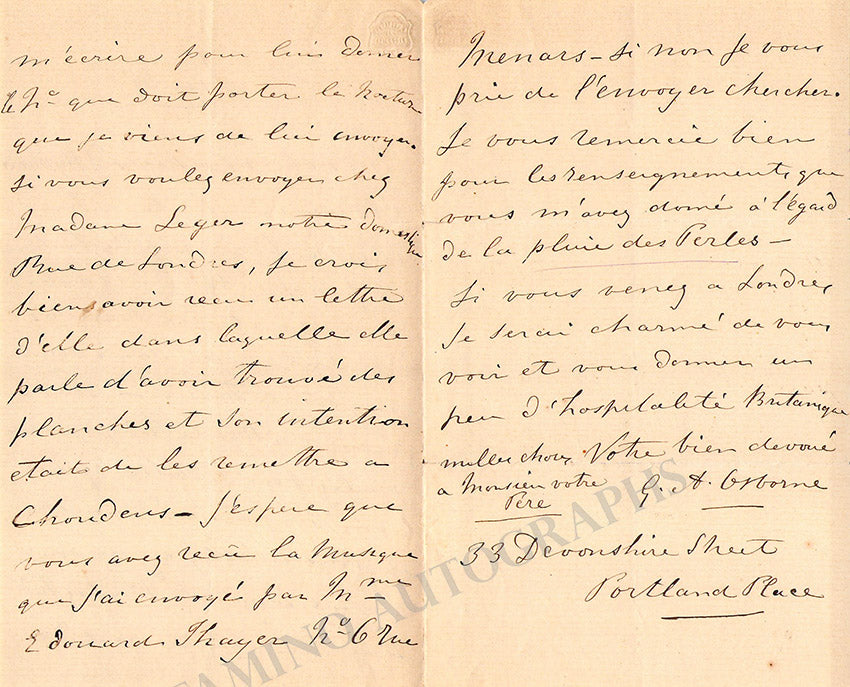 m'écrire pour lui donner
le No que doit porter le Noctur
que je viens de lui envoyer.
Si vous voulez envoyer chez
Madame Leger notre domestique
Rue de Londres, je crois
bien avoir recu un lettre
d'elle dans laquelle elle
parle d'avoir trouvé des
planches et son intention
etait de les remettre a
Choudens – J'espere que
vous avez recu la Musique
que j'ai envoyé par Mme
Edouard Thayer No 6 Rue
Menars – Si non je vous
prie de l'envoyer chercher.
Je vous remercie bien
pour les renseignements que
vous m'avez donné à l'égard
de la pluie des Perles –
Si vous venez a Londres
Je serai charmé de vous
voir et vous donner un
peu d'hospitalité Britanique
milles choses Votre bien devoué
a Monsieur votre
Pere
G. A. Osborne
33 Devonshire Street
Portland Place
TAMING AUTOGRAPHS